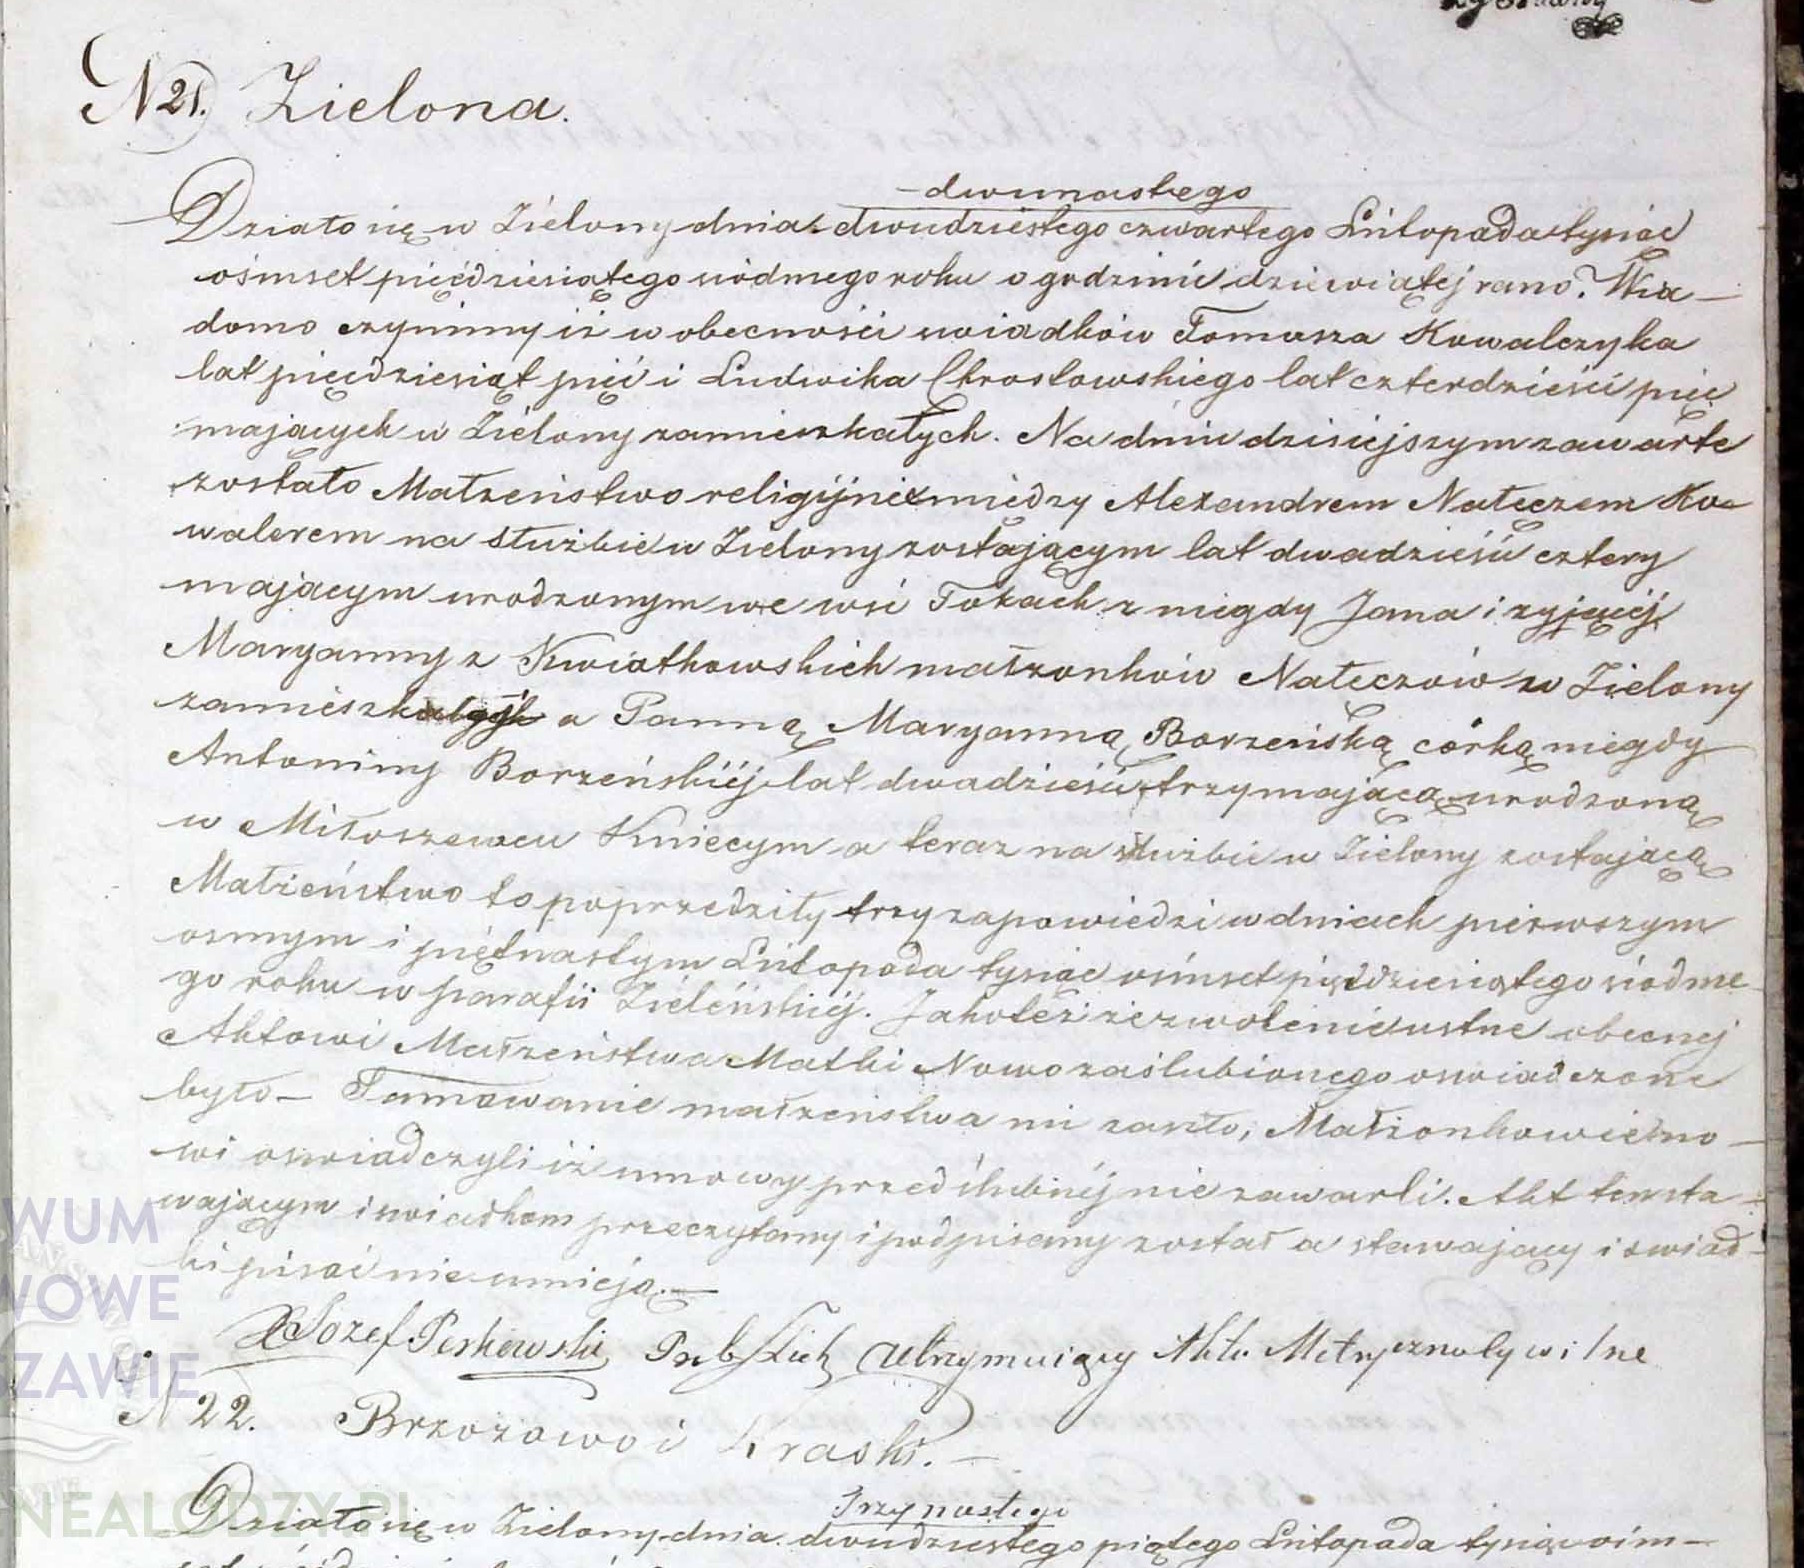 N 21. Zielona.
dwunastego
Działo się w Zielony dnia dwudziestego czwartego Listopada tysiąc
ośmset pięćdziesiątego siódmego roku o godzinie dziewiątej rano. Wia-
domo czynimy iż w obecności swiadków Tomasza Kowalczyka
lat pięćdziesiąt pięć i Ludwika Chrostowskiego lat czterdzieści pięć
mających w Zielony zamieszkałych. Na dniu dzisiejszym zawarte
zostało Małzeństwo religijne miedzy Alexandrem Nałeczem Ka-
walerem na służbie w Zielony zostającym lat dwadzieścia cztery
mającym urodzonym we wsi Tokach z niegdy Jana i zyjącéj
Maryanny z Kwiatkowskich małzonków Nałeczów w Zielony
zamieszkałych a Panną Maryanną Borzeńską córką niegdy
Antoniny Borzeńskiéj lat dwadzieścia trzy mającą urodzoną
w Miłoszewcu Kniecym a teraz na służbie w Zielony zostającą
Małżeństwo to poprzedziły trzy zapowiedzi w dniach pierwszym
osmym i piętnastym Listopada tysiąc ośmset pięćdziesiątego siódme
go roku w parafii Zieleńskiéj. Jakoteż zezwolenie ustne obecnej
Aktowi Małzeństwa Matki Nowozaślubionego oswiadczone
było - Tamowanie małzeństwa nie zaszło, Małżonkowie no-
wi oswiadczyli iż umowy przedślubnéj nie zawarli. Akt ten sta-
wającym i swiadkom przeczytany i podpisany został a stawający i swiad-
ki pisać nie umieją. -
X Józef Perkowski Prob Ziel Utrzymuiący Akta Metryczno Cywilne
N 22. Brzozowo i Kraski. -
Trzynastego
Działo się w Zielony dnia dwudziestego piątego Listopada tysiąc óśm-
WUM
WOWE
ZAWIE
NEALODZY.PL